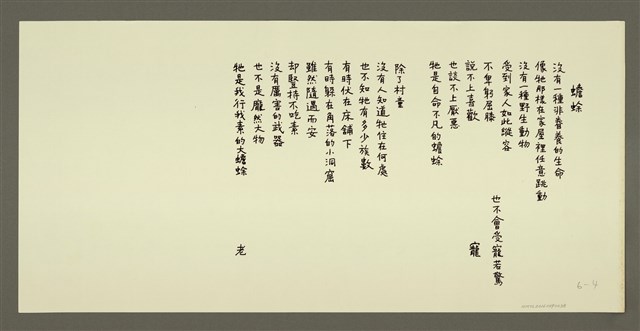 蟾蜍
沒有一種非眷養的生命
像牠那樣在家屋裡任意跳動
沒有一種野生動物
受到家人如此縱容
不卑躬屈膝
也不會受寵若驚
說不上喜歡
寵
也談不上厭惡
牠是自命不凡的蟾蜍
除了村童
沒有人知道牠住在何處
也不知牠有多少族數
有時伏在床舖下
有時躲在角落的小洞窟
雖然隨遇而安
却堅持不吃素
沒有厲害的武器
也不是龐然大物
牠是我行我素的大蟾蜍
老
6-4